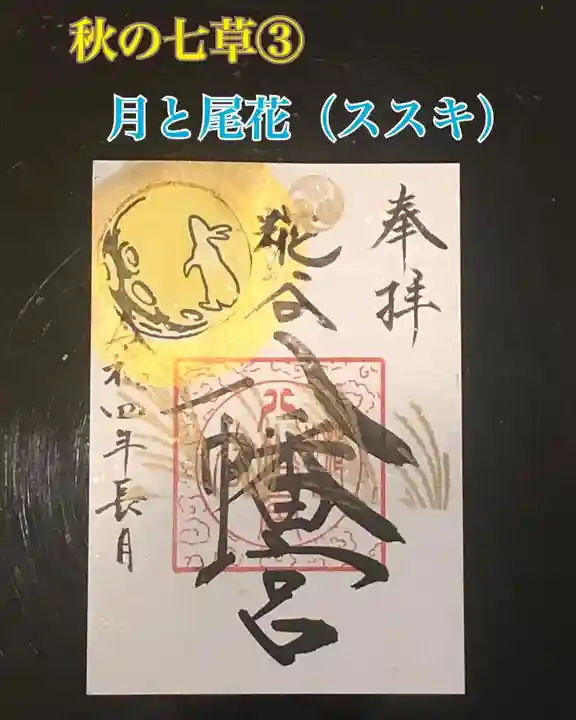 秋の七草③
月と尾花（ススキ）
奉拝
糀谷
八幡宮
令和四年長月